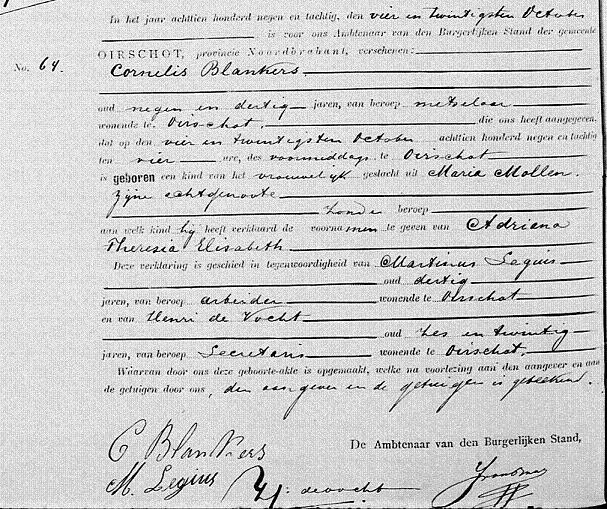 In het jaar achttien honderd negen en tachtig, den vier en twintigsten October
is voor ons Ambtenaar van den Burgerlijken Stand der gemeente
OIRSCHOT, provincie Noordbrabant, verschenen:
No. 64.
Cornelis Blankers
oud negen en dertig jaren, van beroep metselaar
wonende te Oirschot, die ons heeft aangegeven,
dat op den vier en twintigsten October achttien honderd negen en tachtig
ten vier ure, des voormiddags te Oirschot
is geboren een kind van het vrouwelijk geslacht uit Maria Mollen
zijne echtgenoote
zonder beroep
aan welk kind hij heeft verklaard de voornamen te geven van Adriana
Theresia Elisabeth
Deze verklaring is geschied in tegenwoordigheid van Martinus Legius
oud dertig
jaren, van beroep arbeider wonende te Oirschot
en van Henri de Vocht
oud zes en twintig
jaren, van beroep Secretaris wonende te Oirschot.
Waarvan door ons deze geboorte-akte is opgemaakt, welke na voorlezing aan den aangever en aan
de getuigen door ons, den aangever en de getuigen is geteekend.
C Blankers
De Ambtenaar van den Burgerlijken Stand,
M. Legius
H. de Vocht